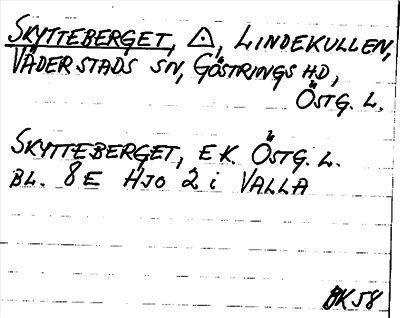 SKYTTEBERGET, △, LINDEKULLEN,
VÄDERSTADS SN, GÖSTRINGS HD,
ÖSTG. L.
SKYTTEBERGET, EK. ÖSTG. L.
BL. 8E HJO 2 i VALLA
ÖK58